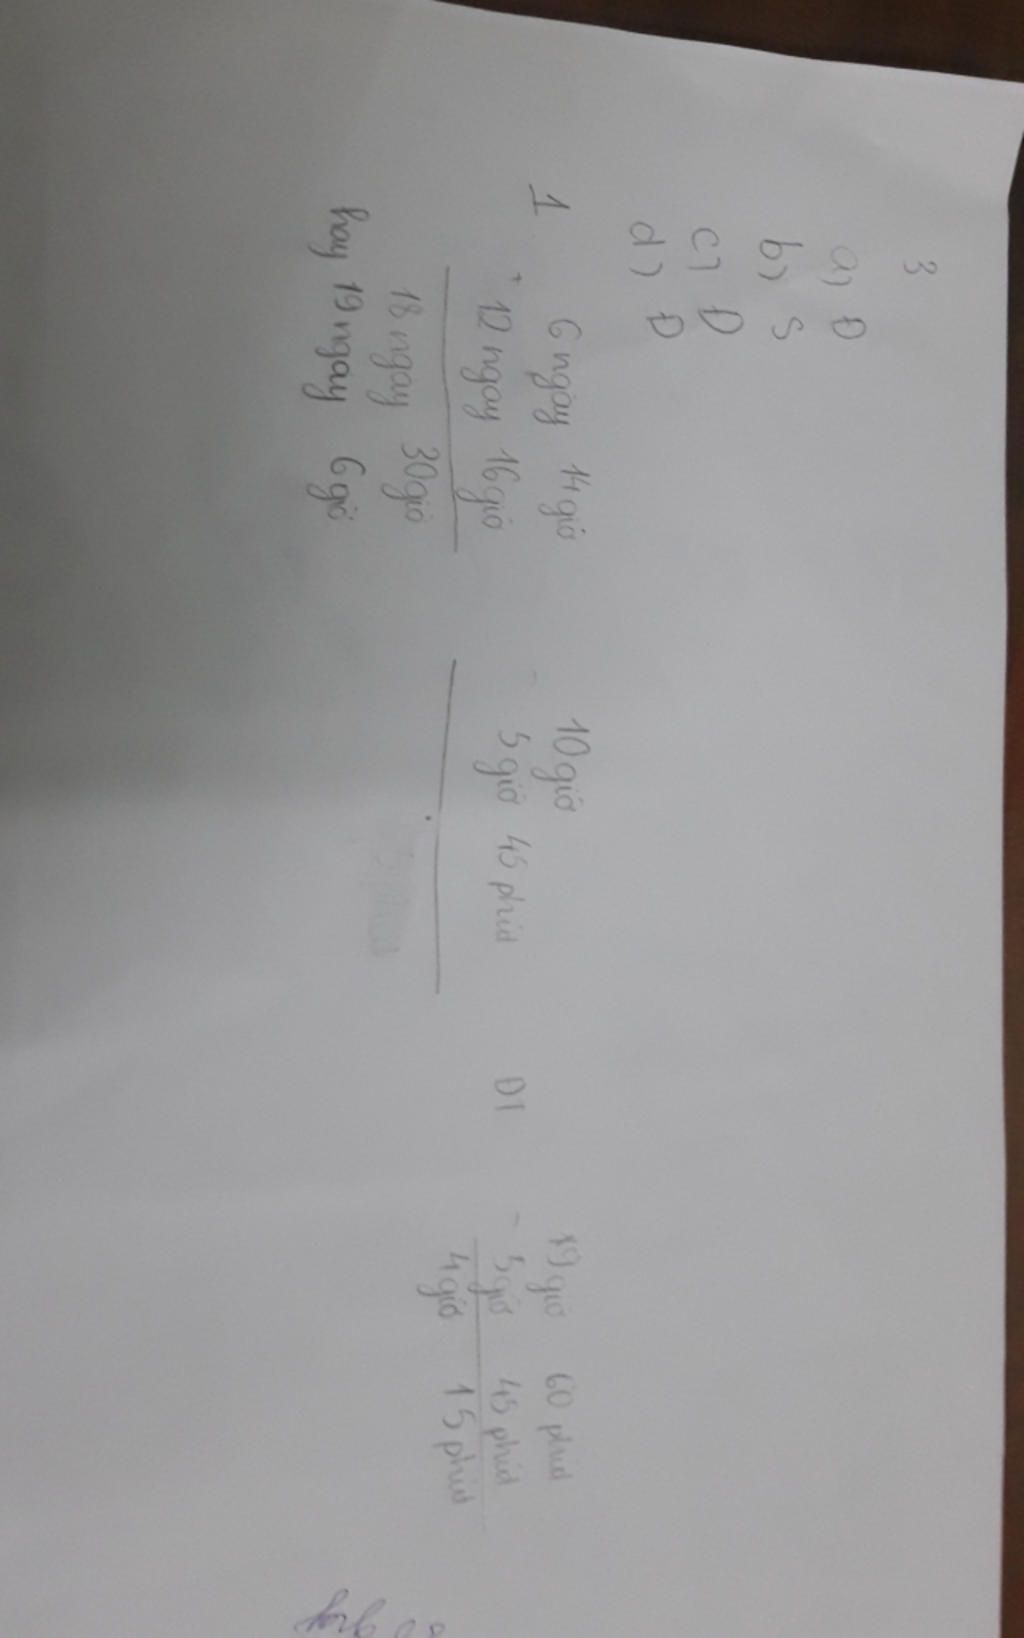 3
a) Đ
b) S
c) Đ
d) Đ
1
6 ngày 14 giờ
+
12 ngày 16 giờ
18 ngày 30 giờ
hay 19 ngày 6 giờ
10 giờ
-
5 giờ 45 phút
ĐT
19 giờ 60 phút
-
5 giờ 45 phút
4 giờ 15 phút